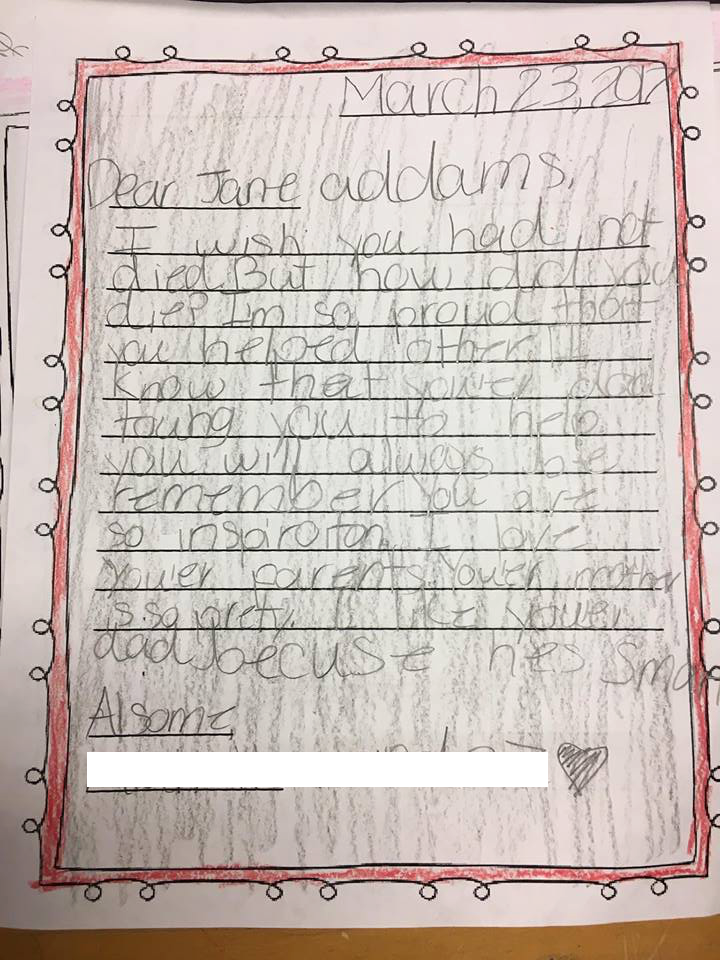 March 23, 2017
Dear Jane addams,
I wish you had not
died. But how did you
die? I'm so proud that
you helped other. I
know that you'er dad
taung you to help
you will always be
remember you are
so inspiraton. I love
you'er parents. You'er mother
is so prety. I like youer
dad becuse he's smar
Alsome